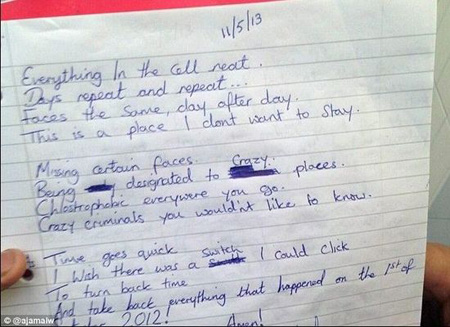 11/5/13
Everything In the Cell neat.
Days repeat and repeat...
Faces the same, day after day.
This is a place I dont want to stay.
Missing certain faces.
Being designated to Crazy places.
Chlostrophobic everywere you go.
Crazy criminals you wouldn't like to know.
Time goes quick
I Wish there was a switch I could click
To turn back time
And take back everything that happened on the 1st of
2012! Amen!
© @ajamalw